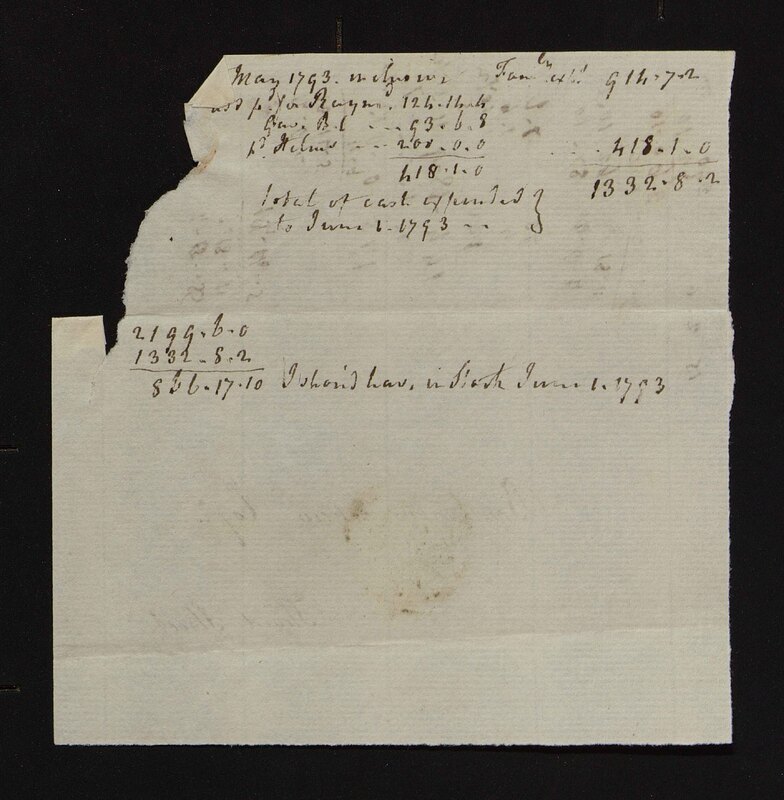 May 1793. inclusive Fam^ly exp^s 914-7-2
add p^d for Raym^d. 124-14-4
Gov. Bd -- 93-6-8
p^d Helms -- 200-0-0 -- 418-1-0
418-1-0 1332-8-2
total of cash expended }
to June 1. 1793 --
2199-6-0
1332-8-2
866-17-10 I shou'd have in Stock June 1. 1793